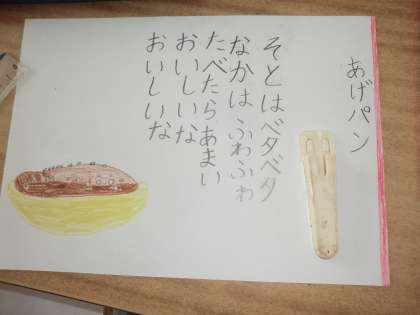 あげパン
そとはベタベタ
なかはふわふわ
たべたらあまい
おいしいな
おいしいな